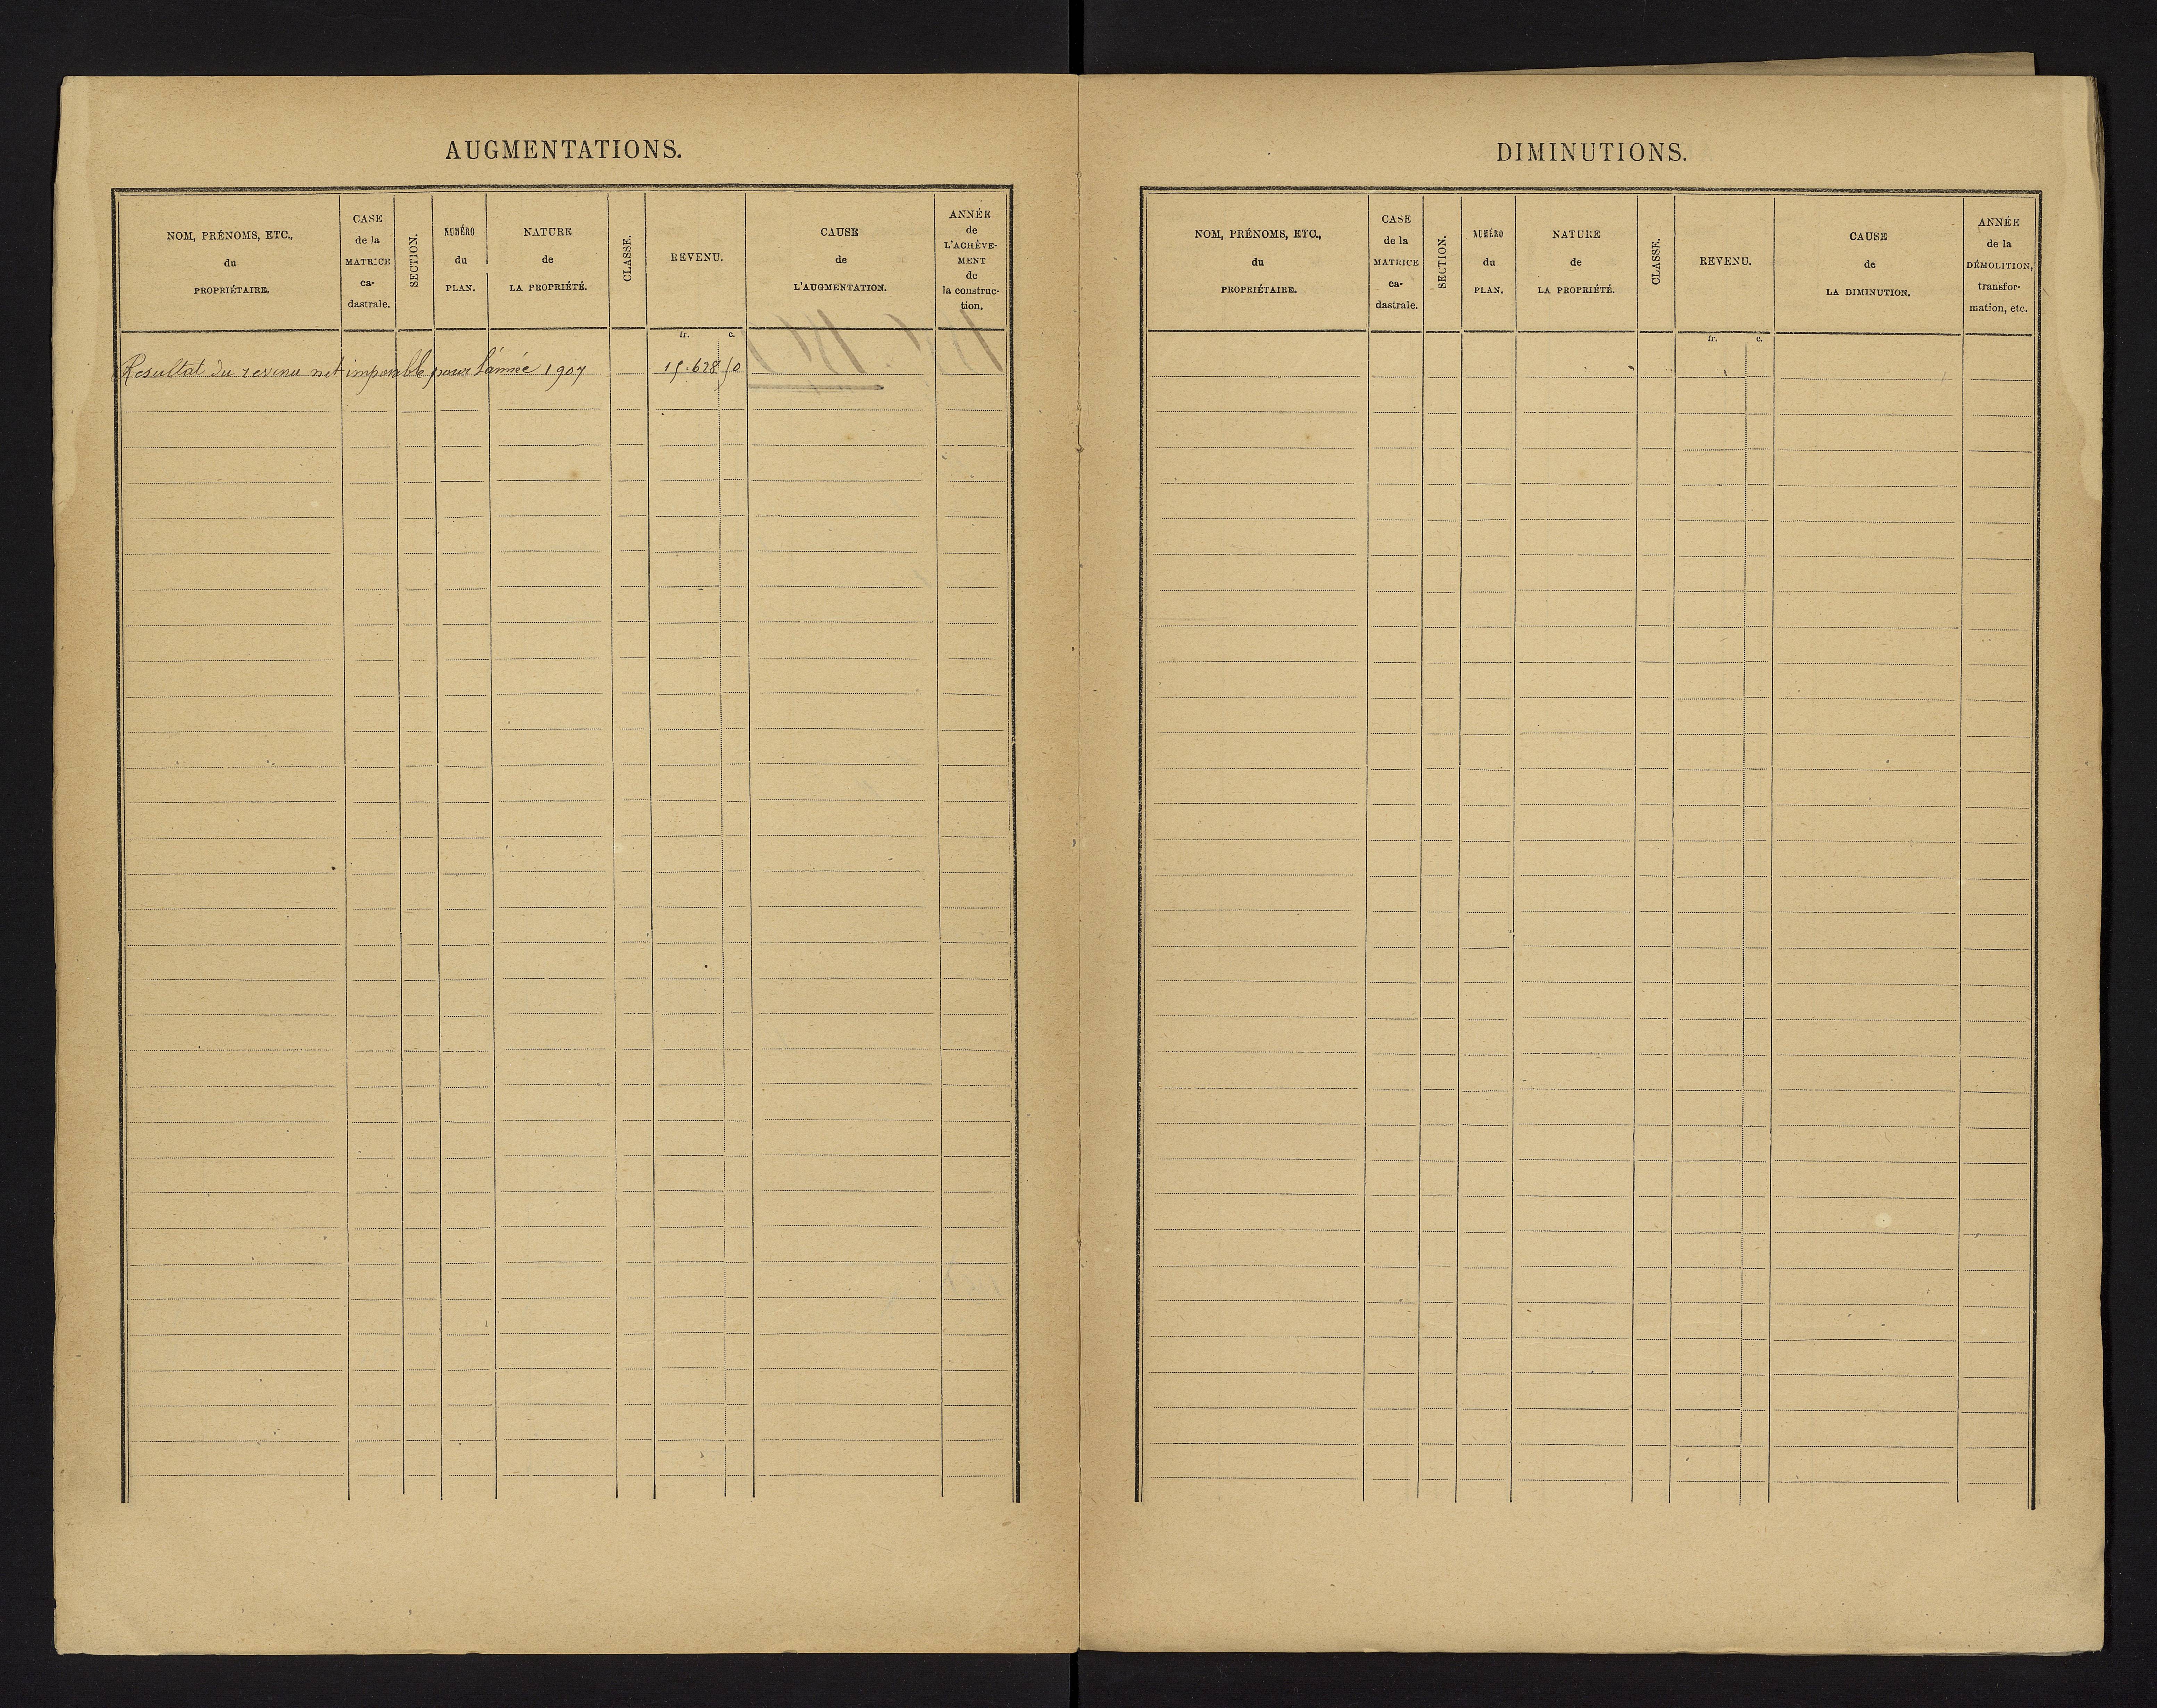 AUGMENTATIONS.
NOM, PRÉNOMS, ETC.,
du
PROPRIÉTAIRE.
CASE
de la
MATRICE
ca-
dastrale.
SECTION.
NUMÉRO
du
PLAN.
NATURE
de
LA PROPRIÉTÉ.
CLASSE.
REVENU.
CAUSE
de
L'AUGMENTATION.
ANNÉE
de
L'ACHÈVE-
MENT
de
la construc-
tion.
fr. c.
Resultat du revenu net imposable pour l'année 1907 15.628 50
DIMINUTIONS.
NOM, PRÉNOMS, ETC.,
du
PROPRIÉTAIRE.
CASE
de la
MATRICE
ca-
dastrale.
SECTION.
NUMÉRO
du
PLAN.
NATURE
de
LA PROPRIÉTÉ.
CLASSE.
REVENU.
CAUSE
de
LA DIMINUTION.
ANNÉE
de la
DÉMOLITION,
transfor-
mation, etc.
fr. c.